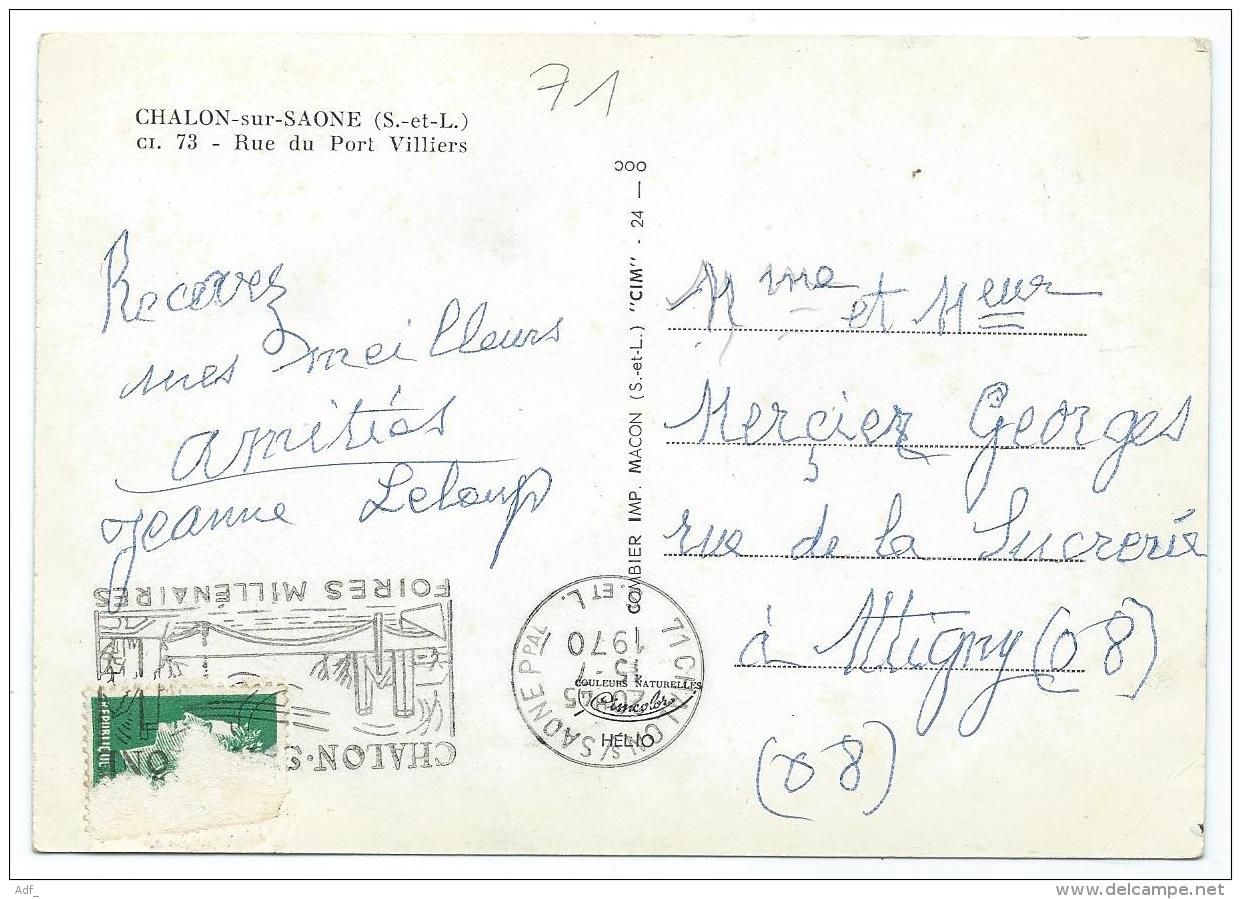 71
CHALON-sur-SAONE (S.-et-L.)
CI. 73 - Rue du Port Villiers
Recevez
mes meilleurs
amitiés
Jeanne Leloup
COMBIER IMP. MACON (S.-et-L.) "CIM" - 24 —
Mme et Meur
Merçier Georges
rue de la Sucrerie
à Attigny (08)
(08)
FOIRES MILLÉNAIRES
CHALON-S
71 CHALON S/ SAONE PPAL S. ET L.
1970
15-7
20H45
COULEURS NATURELLES
Cimcolor
HELIO
REPUBLIQUE
Adf_
www.delcampe.net